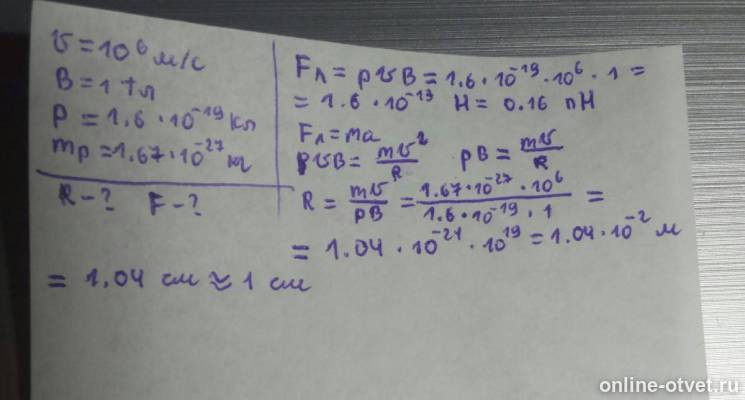 υ = 10⁶ м/с
B = 1 Тл
p = 1.6 · 10⁻¹⁹ Кл
mp = 1.67 · 10⁻²⁷ кг
R - ? F - ?
Fл = pυB = 1.6 · 10⁻¹⁹ · 10⁶ · 1 =
= 1.6 · 10⁻¹³ Н = 0.16 пН
Fл = ma
pυB = mυ²/R pB = mυ/R
R = mυ/pB = 1.67 · 10⁻²⁷ · 10⁶ / 1.6 · 10⁻¹⁹ · 1 =
= 1.04 · 10⁻²¹ · 10¹⁹ = 1.04 · 10⁻² м
= 1.04 см ≈ 1 см
online-otvet.ru